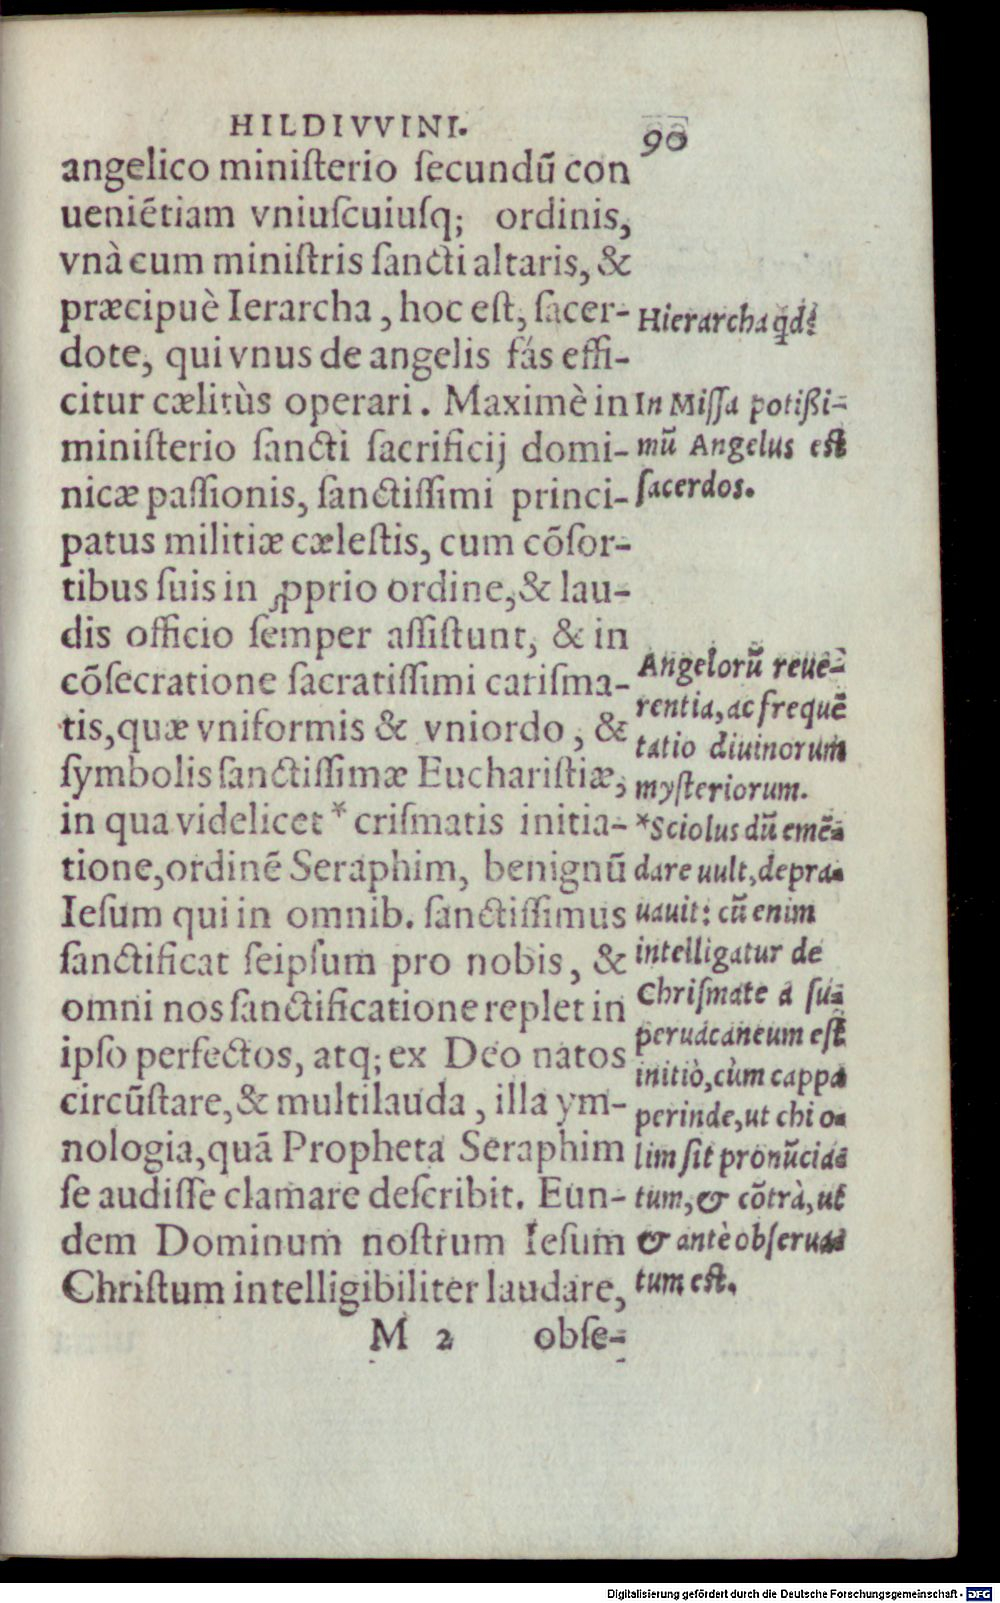 HILDIVVINI.
90
angelico miniſterio ſecundũ con
ueniẽtiam vniuſcuiuſq; ordinis,
vnà cum miniſtris ſancti altaris, &
præcipuè Ierarcha, hoc eſt, ſacer-
dote, qui vnus de angelis fás effi-
citur cælitùs operari. Maximè in
miniſterio ſancti ſacrificij domi-
nicæ paſſionis, ſanctiſſimi princi-
patus militiæ cæleſtis, cum cõſor-
tibus ſuis in ꝓprio ordine, & lau-
dis officio ſemper aſſiſtunt, & in
cõſecratione ſacratiſſimi cariſma-
tis, quæ vniformis & vniordo, &
ſymbolis ſanctiſſimæ Euchariſtiæ,
in qua videlicet * criſmatis initia-
tione, ordinẽ Seraphim, benignũ
Ieſum qui in omnib. ſanctiſſimus
ſanctificat ſeipſum pro nobis, &
omni nos ſanctificatione replet in
ipſo perfectos, atq; ex Deo natos
circũſtare, & multilauda, illa ym-
nologia, quã Propheta Seraphim
ſe audiſſe clamare deſcribit. Eun-
dem Dominum noſtrum Ieſum
Chriſtum intelligibiliter laudare,
M 2 obſe-
Hierarcha qd?
In Miſſa potißi-
mũ Angelus eſt
ſacerdos.
Angelorũ reue-
rentia, ac frequẽ
tatio diuinorum
myſteriorum.
*Sciolus dũ emẽ-
dare uult, depra-
uauit: cũ enim
intelligatur de
Chriſmate a ſu-
peruacaneum eſt
initiò, cùm cappa
perinde, ut chi o-
lim ſit pronũcia-
tum, & cõtrà, ut
& antè obſerua-
tum eſt.
Digitalisierung gefördert durch die Deutsche Forschungsgemeinschaft - DFG